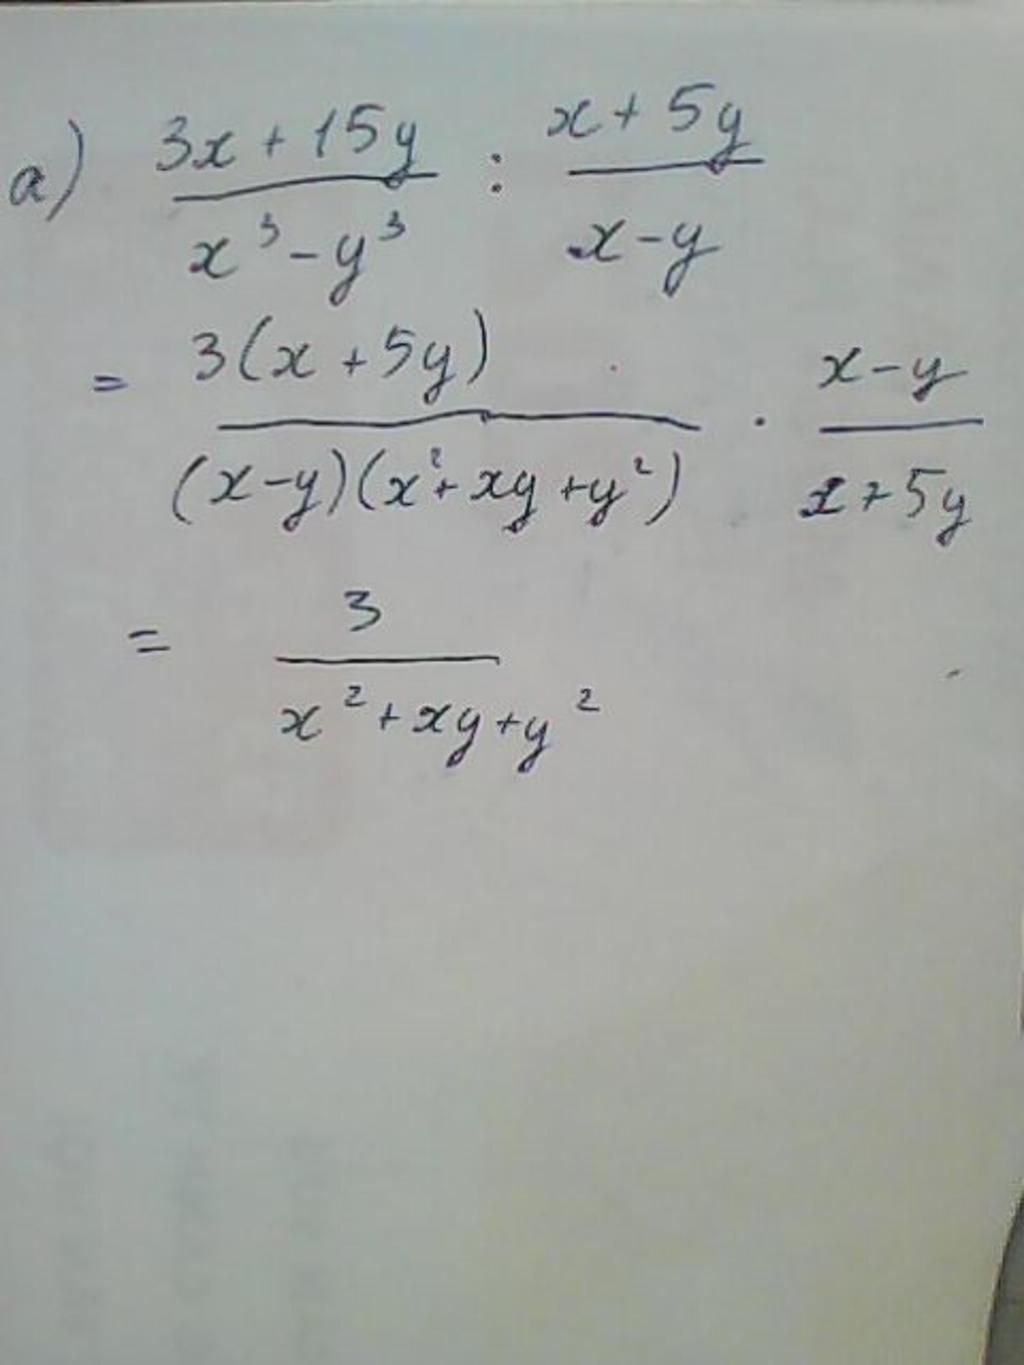 a) \frac{3x + 15y}{x^3 - y^3} : \frac{x + 5y}{x - y}
= \frac{3(x + 5y)}{(x - y)(x^2 + xy + y^2)} \cdot \frac{x - y}{x + 5y}
= \frac{3}{x^2 + xy + y^2}